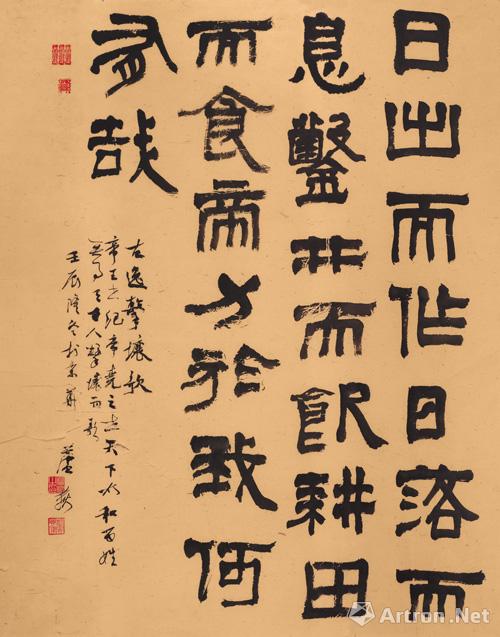 日出而作日落而
息鑿井而飲耕田
而食帝力於我何
有哉
古逸擊壤歌
帝王之紀帝堯之世天下大和百姓
無事十人擊壤而歌
壬辰隆冬於京華
Artron.Net